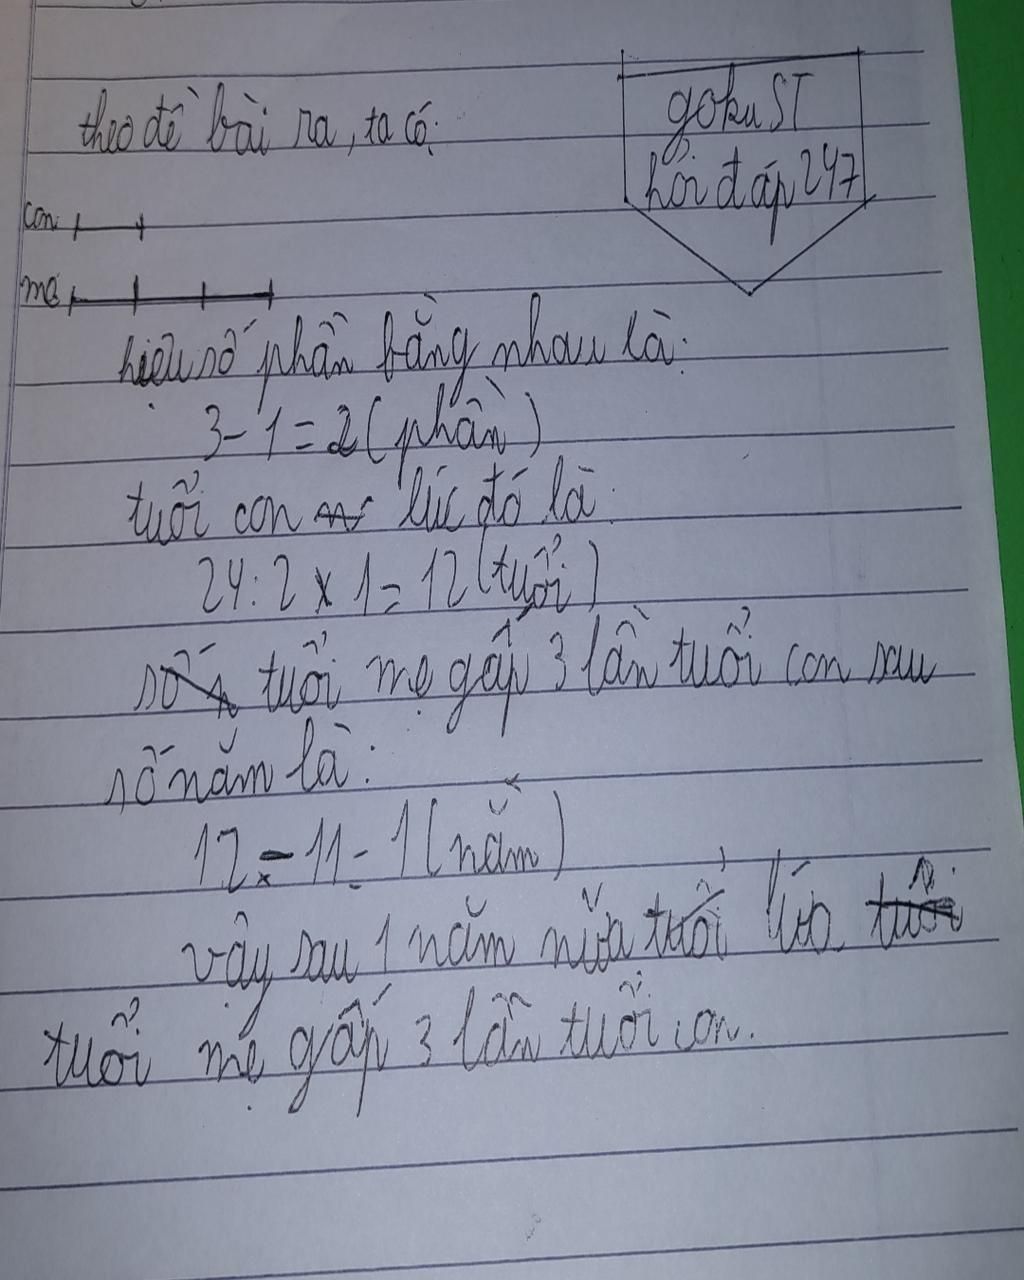 theo đề bài ra, ta có:
goku ST
hỏi đáp 247
con
mẹ
hiệu số phần bằng nhau là:
3-1=2(phần)
tuổi con lúc đó là:
24:2x1=12(tuổi)
tuổi mẹ gấp 3 lần tuổi con sau
số năm là:
12-11=1(năm)
vậy sau 1 năm nữa tuổi
tuổi mẹ gấp 3 lần tuổi con.